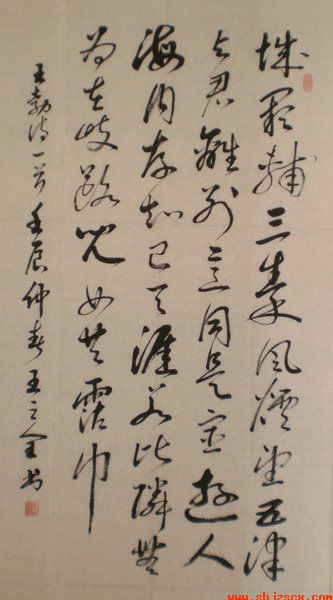 城阙輔三秦風煙望五津
与君離别意同是宦遊人
海内存知己天涯若比隣無
为在歧路児女共霑巾
王勃诗一首壬辰仲春王之全书
www.shjzscx.com